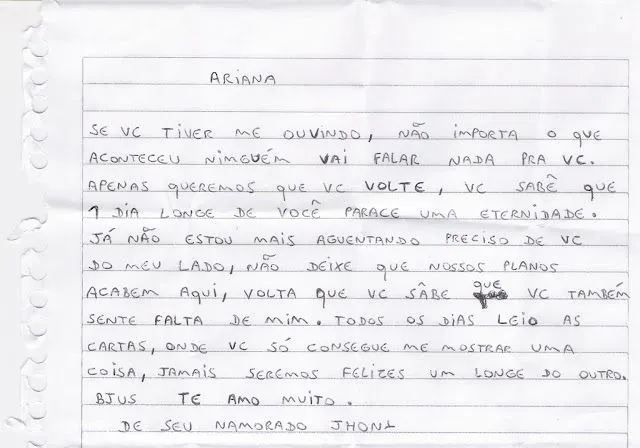 ARIANA
SE VC TIVER ME OUVINDO, NÃO IMPORTA O QUE
ACONTECEU NIMGUÉM VAI FALAR NADA PRA VC.
APENAS QUEREMOS QUE VC VOLTE, VC SABÊ QUE
1 DIA LONGE DE VOCÊ PARACE UMA ETERNIDADE.
JÁ NÃO ESTOU MAIS AGUENTANDO PRECISO DE VC
DO MEU LADO, NÃO DEIXE QUE NOSSOS PLANOS
ACABEM AQUI, VOLTA QUE VC SÂBE QUE VC TAMBÉM
SENTE FALTA DE MIM. TODOS OS DIAS LEIO AS
CARTAS, ONDE VC SÓ CONSEGUE ME MOSTRAR UMA
COISA, JAMAIS SEREMOS FELIZES UM LONGE DO OUTRO.
BJUS TE AMO MUITO.
DE SEU NAMORADO JHONY